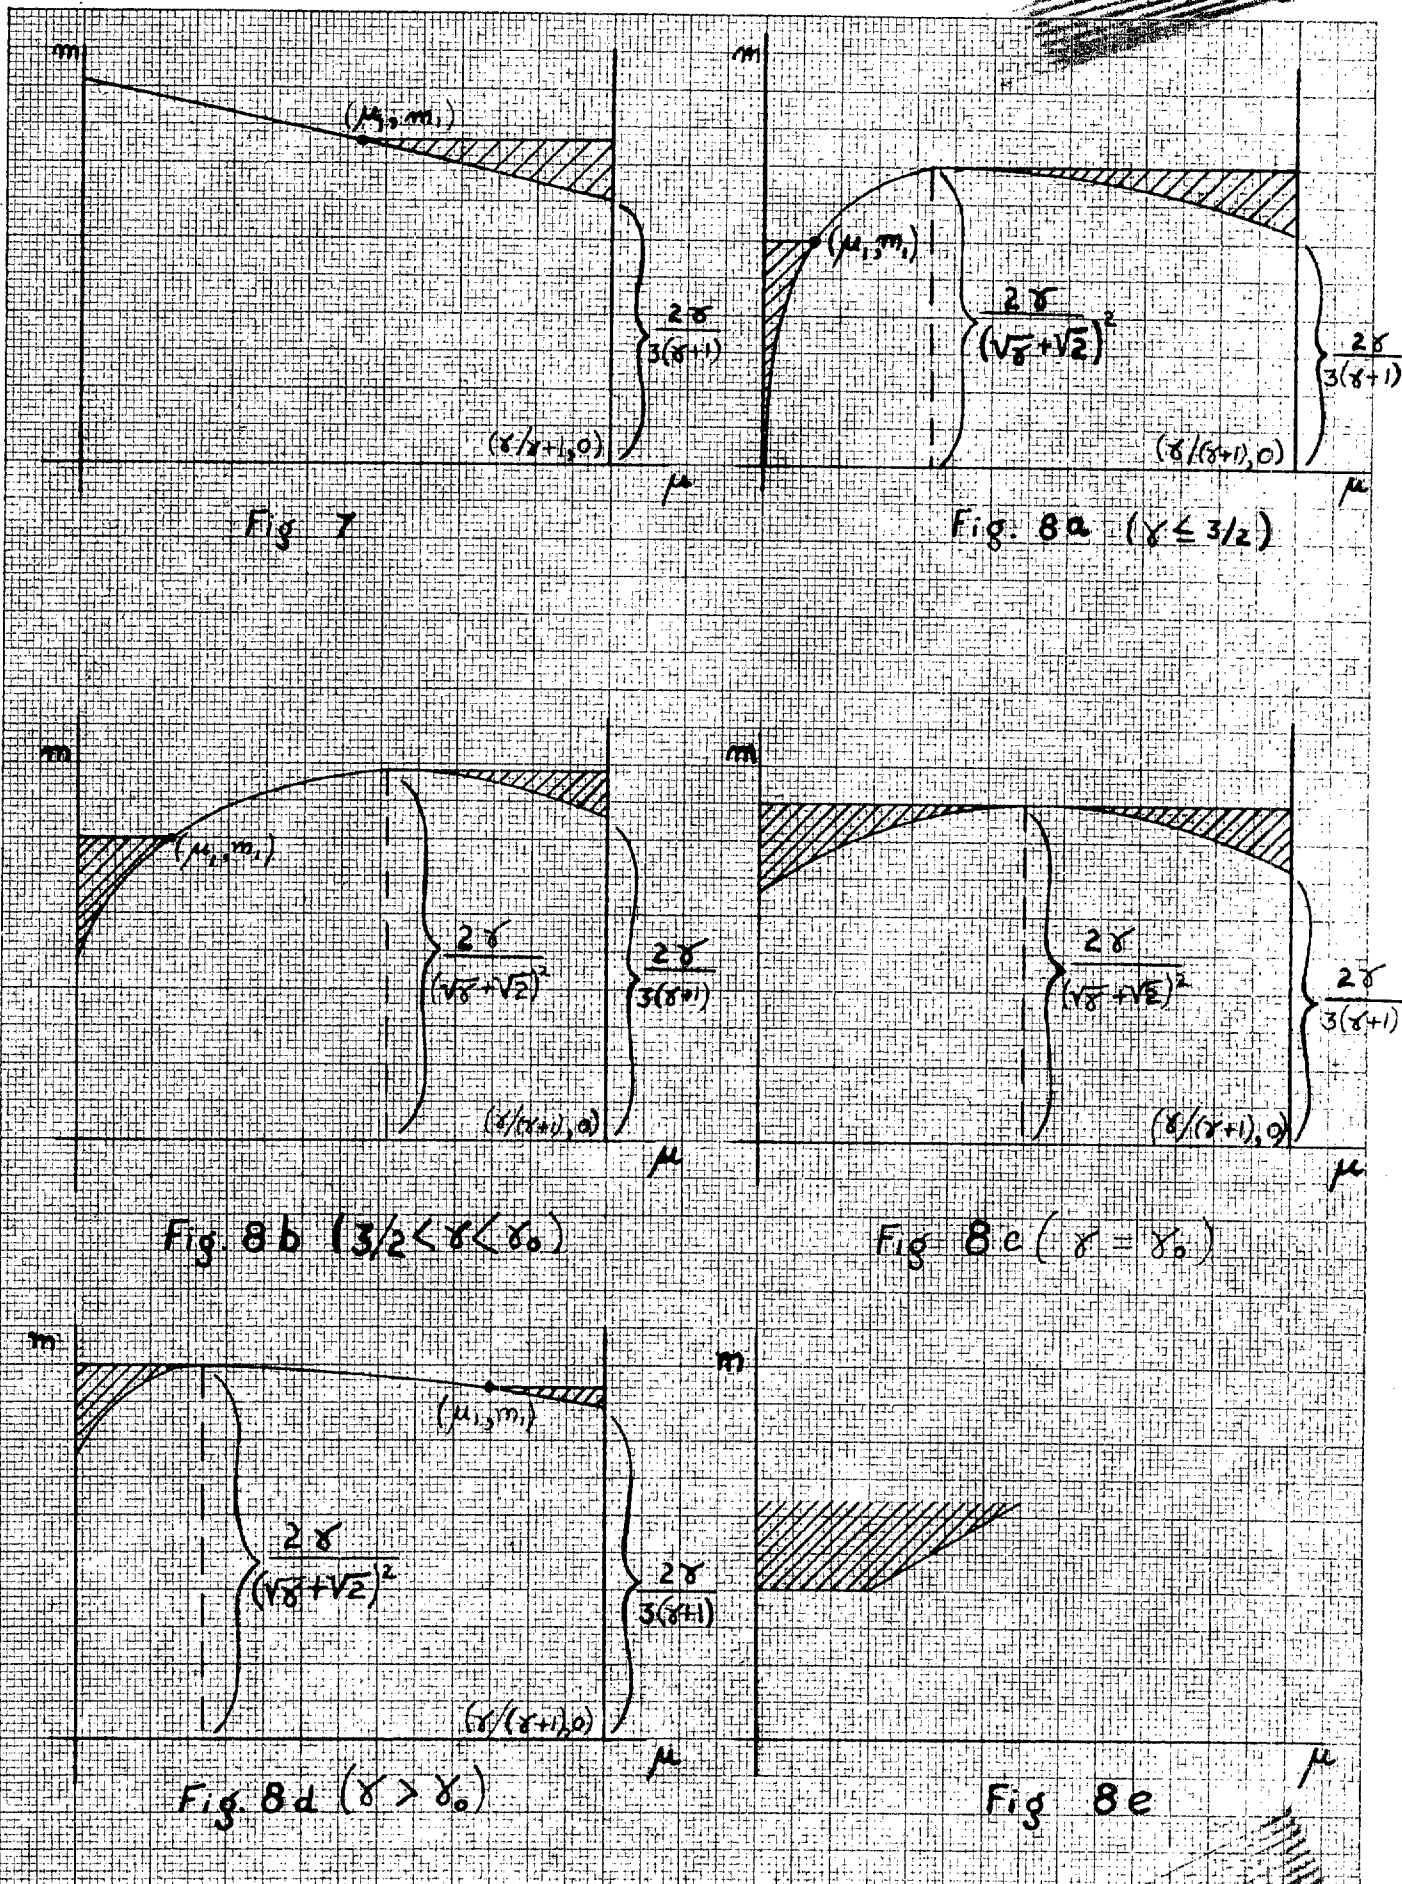 m
(μ₁, m₁)
2γ
3(γ+1)
(γ/γ+1, 0)
μ
Fig 7
m
(μ₁, m₁)
2γ
(√γ+√2)²
2γ
3(γ+1)
(γ/(γ+1), 0)
μ
Fig. 8a (γ ≤ 3/2)
m
(μ₁, m₁)
2γ
(√γ+√2)²
2γ
3(γ+1)
(γ/(γ+1), 0)
μ
Fig. 8b (3/2 < γ < γ₀)
m
2γ
(√γ+√2)²
2γ
3(γ+1)
(γ/(γ+1), 0)
μ
Fig 8c (γ = γ₀)
m
(μ₁, m₁)
2γ
(√γ+√2)²
2γ
3(γ+1)
(γ/(γ+1), 0)
μ
Fig. 8d (γ > γ₀)
m
μ
Fig 8e